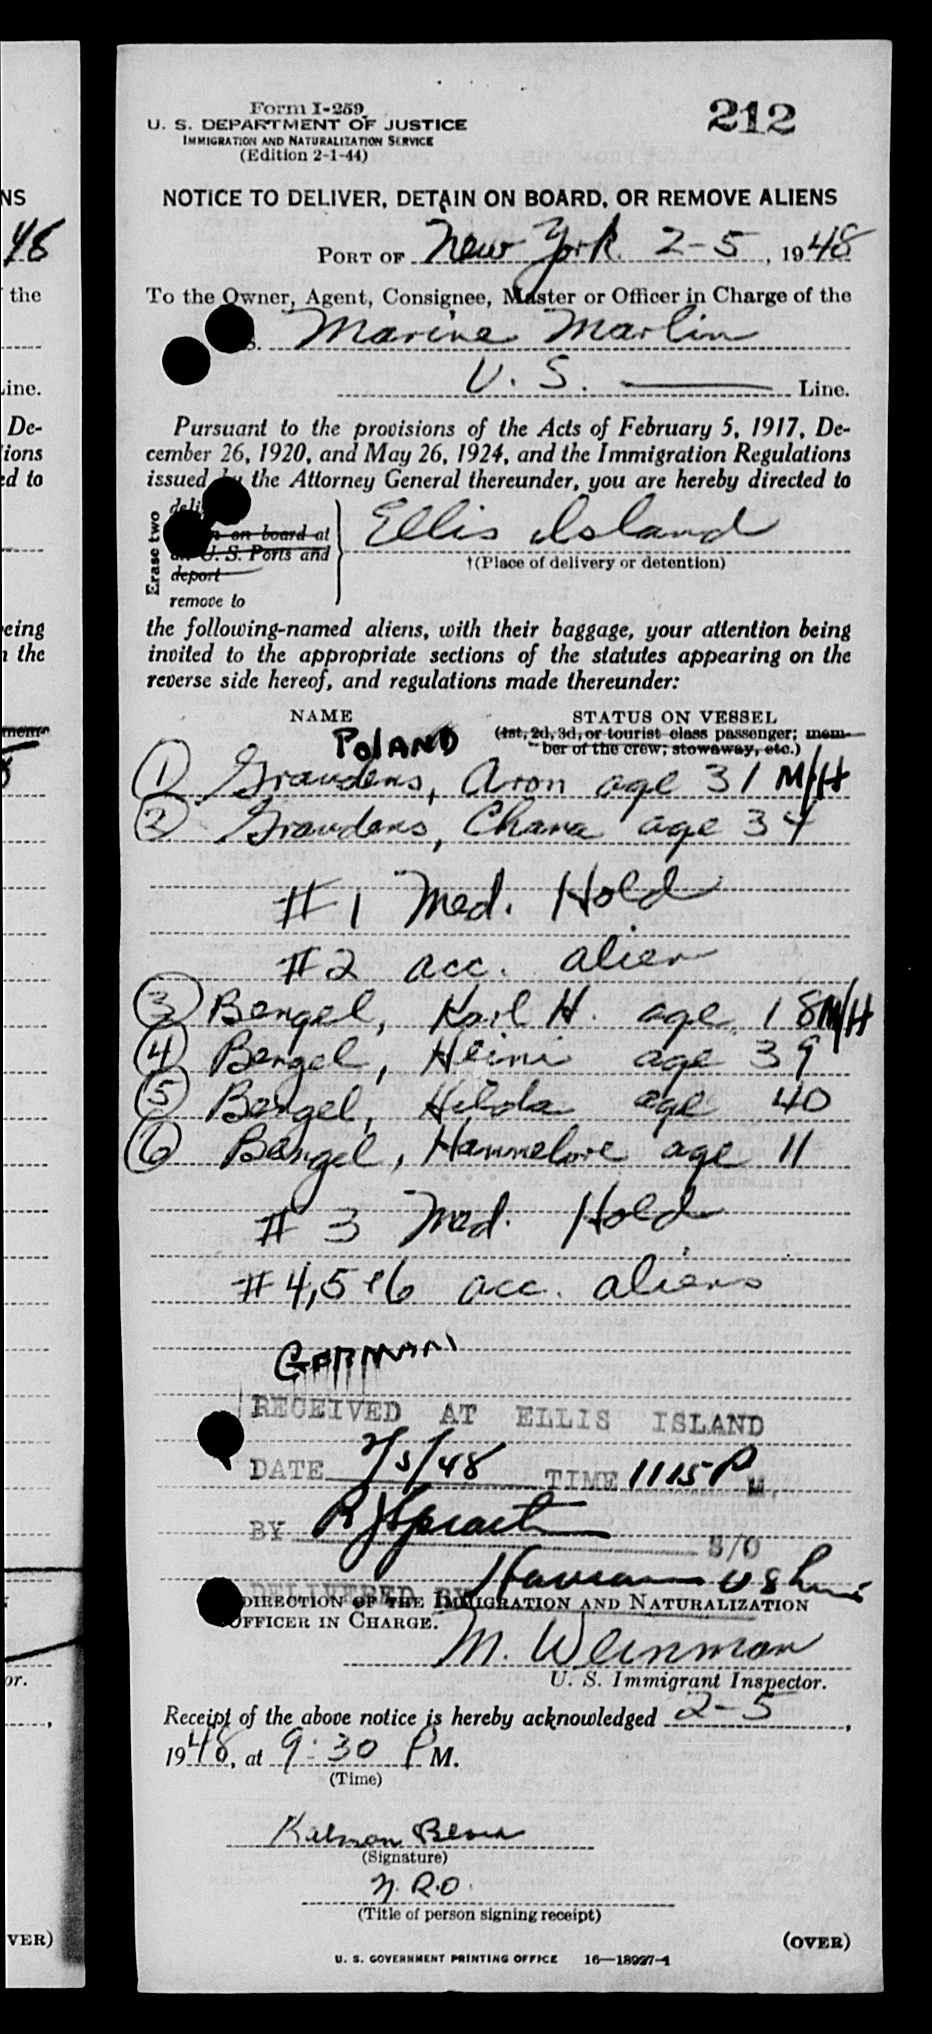 NS
48
the
Line.
De-
ions
ed to
being
n the
mem-
or.
VER)
Form I-259
212
U. S. DEPARTMENT OF JUSTICE
IMMIGRATION AND NATURALIZATION SERVICE
(Edition 2-1-44)
NOTICE TO DELIVER, DETAIN ON BOARD, OR REMOVE ALIENS
PORT OF New York 2-5, 1948
To the Owner, Agent, Consignee, Master or Officer in Charge of the
S. Marine Marlin
U. S. Line.
Pursuant to the provisions of the Acts of February 5, 1917, De-
cember 26, 1920, and May 26, 1924, and the Immigration Regulations
issued by the Attorney General thereunder, you are hereby directed to
Erase two
deli
on board at
U. S. Ports and
deport
remove to
Ellis Island
†(Place of delivery or detention)
the following-named aliens, with their baggage, your attention being
invited to the appropriate sections of the statutes appearing on the
reverse side hereof, and regulations made thereunder:
NAME STATUS ON VESSEL
POLAND (1st, 2d, 3d, or tourist class passenger; mem-
ber of the crew; stowaway, etc.)
1 Graudens, Aron age 31 M/H
2 Graudens, Chana age 34
#1 Med. Hold
#2 acc. alien
3 Bengel, Karl H. age 18 M/H
4 Bengel, Heini age 39
5 Bengel, Hilda age 40
6 Bengel, Hannelore age 11
#3 Med. Hold
#4, 5 + 6 acc. aliens
GERMAN
RECEIVED AT ELLIS ISLAND
DATE 2/5/48 TIME 1115 P M.
BY S/O
DELIVERED BY
DIRECTION OF THE IMMIGRATION AND NATURALIZATION
OFFICER IN CHARGE.
M. Weinman
U. S. Immigrant Inspector.
Receipt of the above notice is hereby acknowledged 2-5,
1948, at 9:30 P M.
(Time)
Kalman
(Signature)
(Title of person signing receipt)
(OVER)
U. S. GOVERNMENT PRINTING OFFICE 16—18927-1